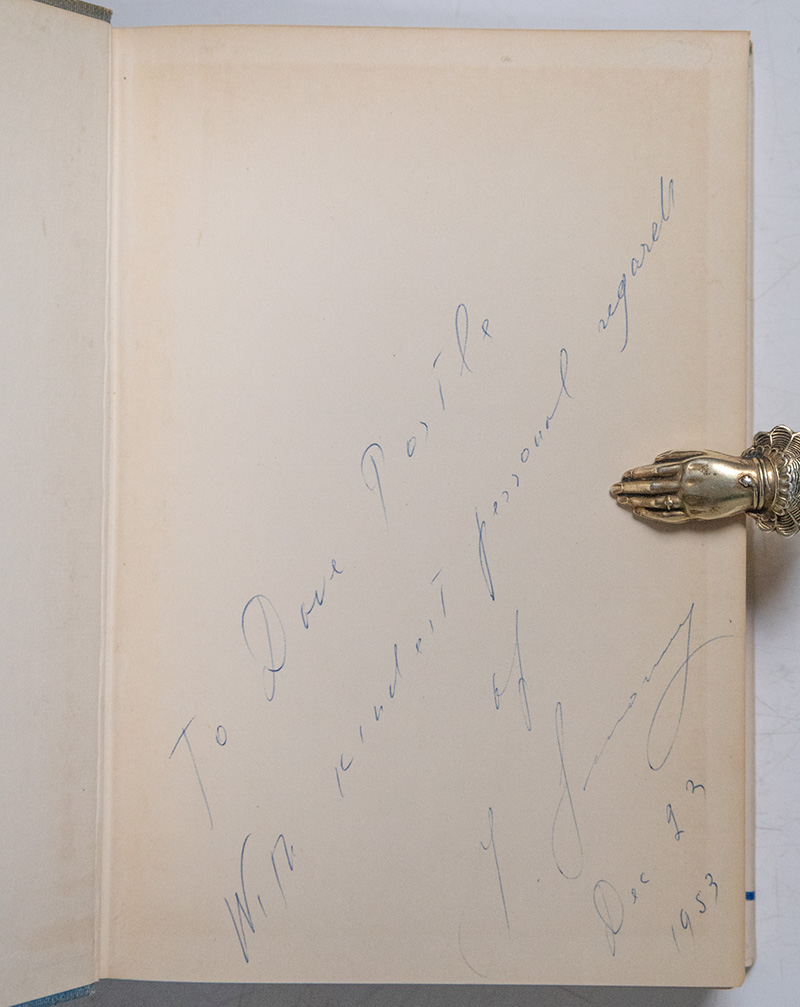 To Dave Postle
With kindest personal regards
of
Dec 23
1953